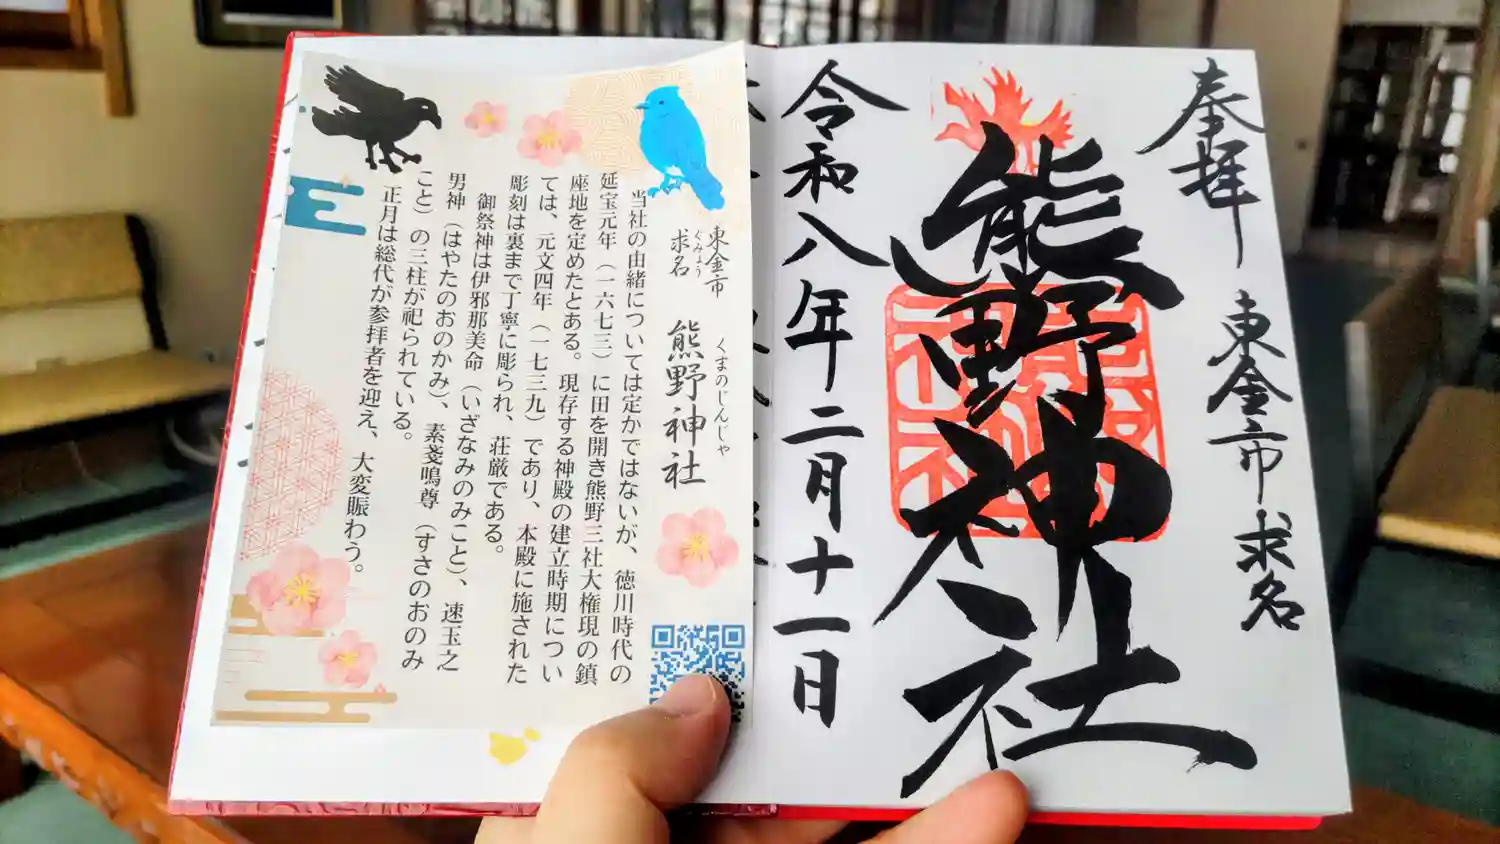 奉拝
東金市 求名
熊野神社
令和八年二月十一日
東金市
求名
ぐみょう
熊野神社
くまのじんじゃ
当社の由緒については定かではないが、徳川時代の
延宝元年（一六七三）に田を開き熊野三社大権現の鎮
座地を定めたとある。現存する神殿の建立時期につい
ては、元文四年（一七三九）であり、本殿に施された
彫刻は裏まで丁寧に彫られ、荘厳である。
御祭神は伊邪那美命（いざなみのみこと）、速玉之
男神（はやたのおのかみ）、素戔嗚尊（すさのおのみ
こと）の三柱が祀られている。
正月は総代が参拝者を迎え、大変賑わう。